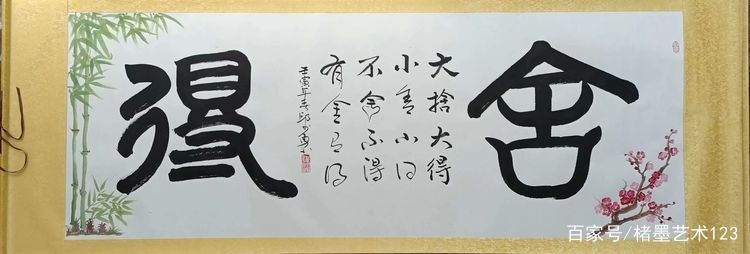 舍
大捨大得
小舍小得
不舍不得
有舍有得
壬寅年春邱
得
百家号/楮墨艺术123